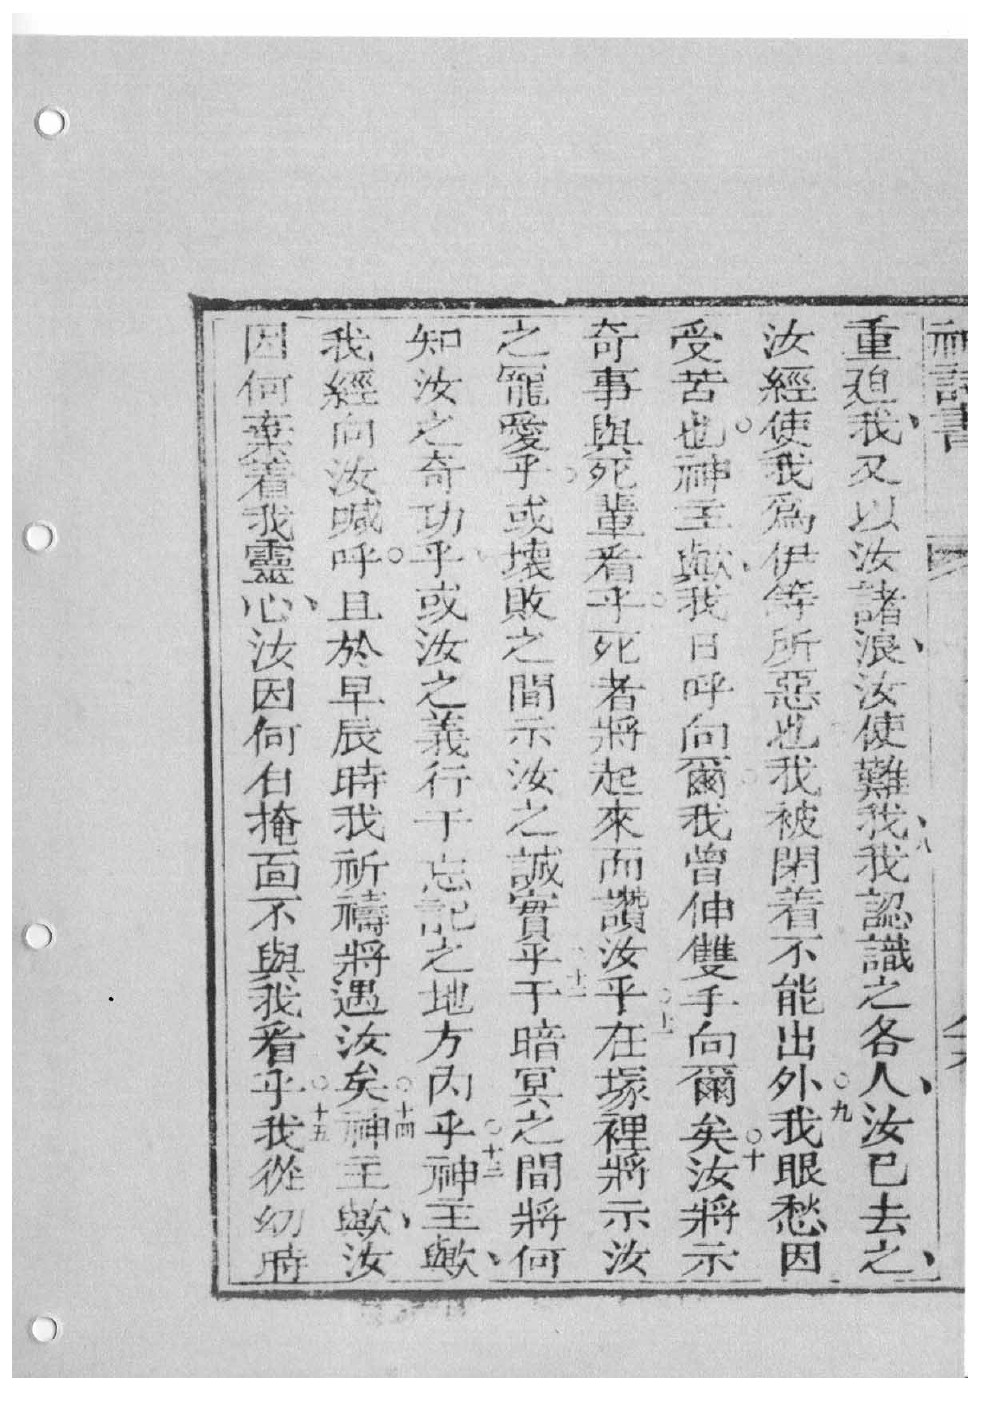 神詩書
重迫我、又以汝諸浪、汝使難我、八我認識之各人、汝已去之、
汝經使我為伊等所惡也我被閉着不能出外○九我眼愁因
受苦也○神主歟、我日呼向爾○我曾伸雙手向爾矣○十汝將示
奇事與死輩看乎○死者將起來而讚汝乎○十一在塚裡將示汝
之寵愛乎○或壞敗之間示汝之誠實乎○十二于暗冥之間將何
知汝之奇功乎○或汝之義行于忘記之地方內乎○十三神主歟、
我經向汝喊呼○且於早辰時我祈禱將遇汝矣○十四神主歟、汝
因何棄着我靈心、汝因何自掩面不與我看乎○十五我從幼時